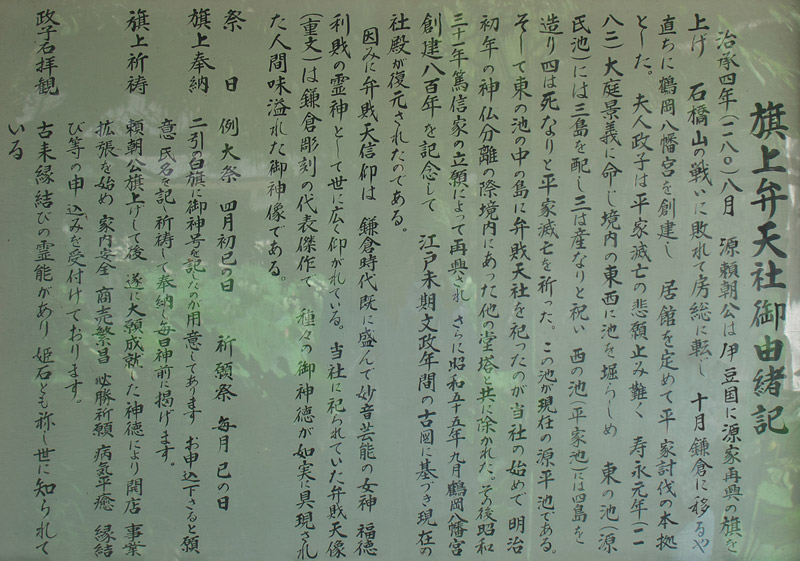 旗上弁天社御由緒記
治承四年(一一八〇)八月 源頼朝公は伊豆国に源家再興の旗を
上げ 石橋山の戦いに敗れて房総に転し 十月鎌倉に移るや
直ちに鶴岡八幡宮を創建し 居館を定めて平家討伐の本拠
とした。 夫人政子は平家滅亡の悲願止み難く 寿永元年(一一
八二)大庭景義に命じ境内の東西に池を掘らしめ 東の池(源
氏池)には三島を配し三は産なりと祝い 西の池(平家池)には四島を
造り四は死なりと平家滅亡を祈った。この池が現在の源平池である。
そして東の池の中の島に弁財天社を祀ったのが当社の始めで 明治
初年の神仏分離の際境内にあった他の堂塔と共に除かれた。その後昭和
三十一年篤信家の立願によって再興され さらに昭和五十五年九月鶴岡八幡宮
創建八百年を記念して 江戸末期文政年間の古図に基づき現在の
社殿が復元されたのである。
因みに弁財天信仰は 鎌倉時代既に盛んで妙音芸能の女神 福徳
利財の霊神として世に広く仰がれている。当社に祀られていた弁財天像
(重文)は鎌倉彫刻の代表傑作で 種々の御神徳が如実に具現され
た人間味溢れた御神像である。
祭 日 例大祭 四月初巳の日 祈願祭 毎月巳の日
旗上奉納 二引の白旗に御神号を記したのが用意してあります お申込下さると願
意 氏名を記し祈祷して奉納し毎日神前に掲げます。
旗上祈祷 頼朝公旗上げして後 遂に大願成就した神徳により開店 事業
拡張を始め 家内安全 商売繁昌 必勝祈願 病気平癒 縁結
び等の申込みを受付けております。
政子石拝観 古来縁結びの霊能があり 姫石とも称し世に知られて
いる